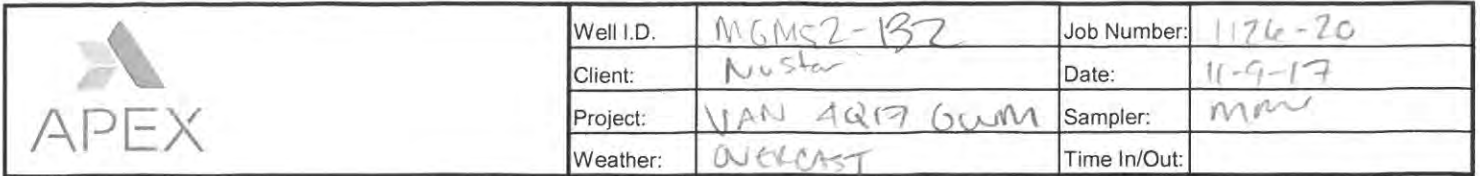 Well I.D. MGMS2-132 Job Number: 1126-20
Client: NuStar Date: 11-9-17
APEX Project: VAN 4Q17 GWM Sampler:
Weather: OVERCAST Time In/Out: